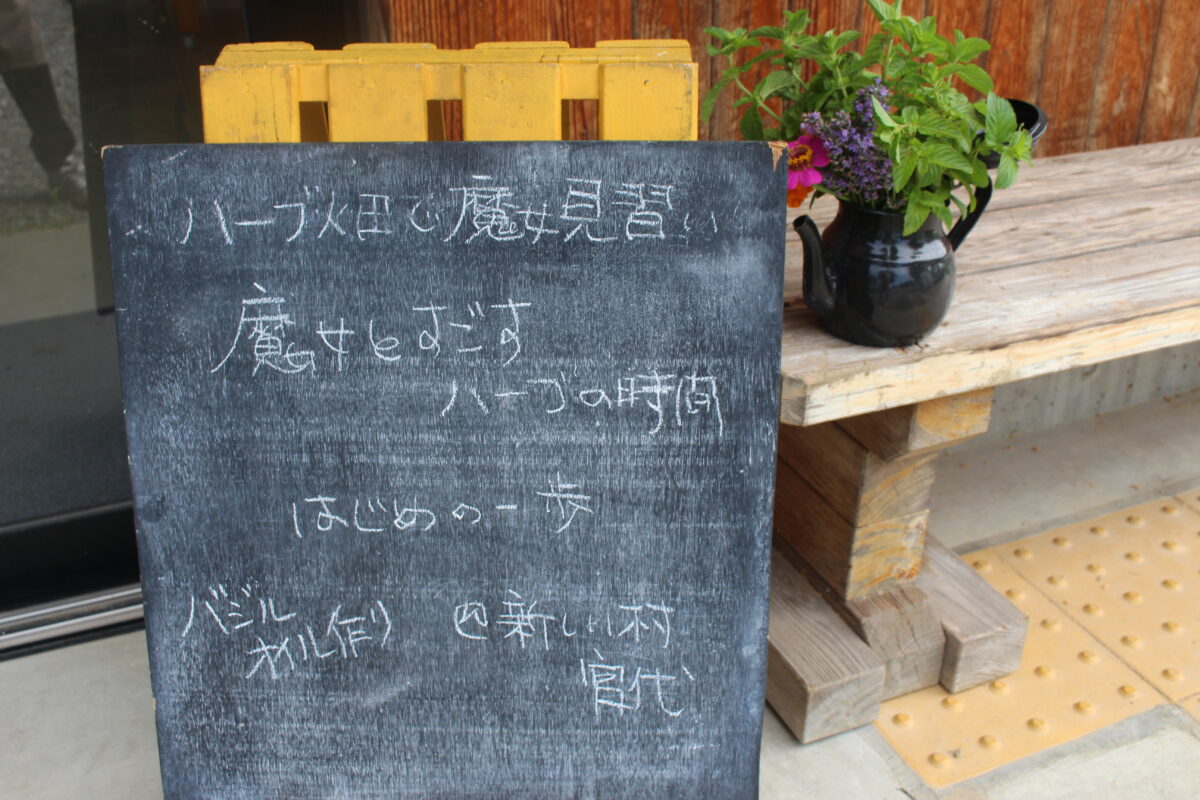 ハーブ畑で魔女見習い
魔女とすごす
ハーブの時間
はじめの一歩
バジル
オイル作り
@新しい村
宮代